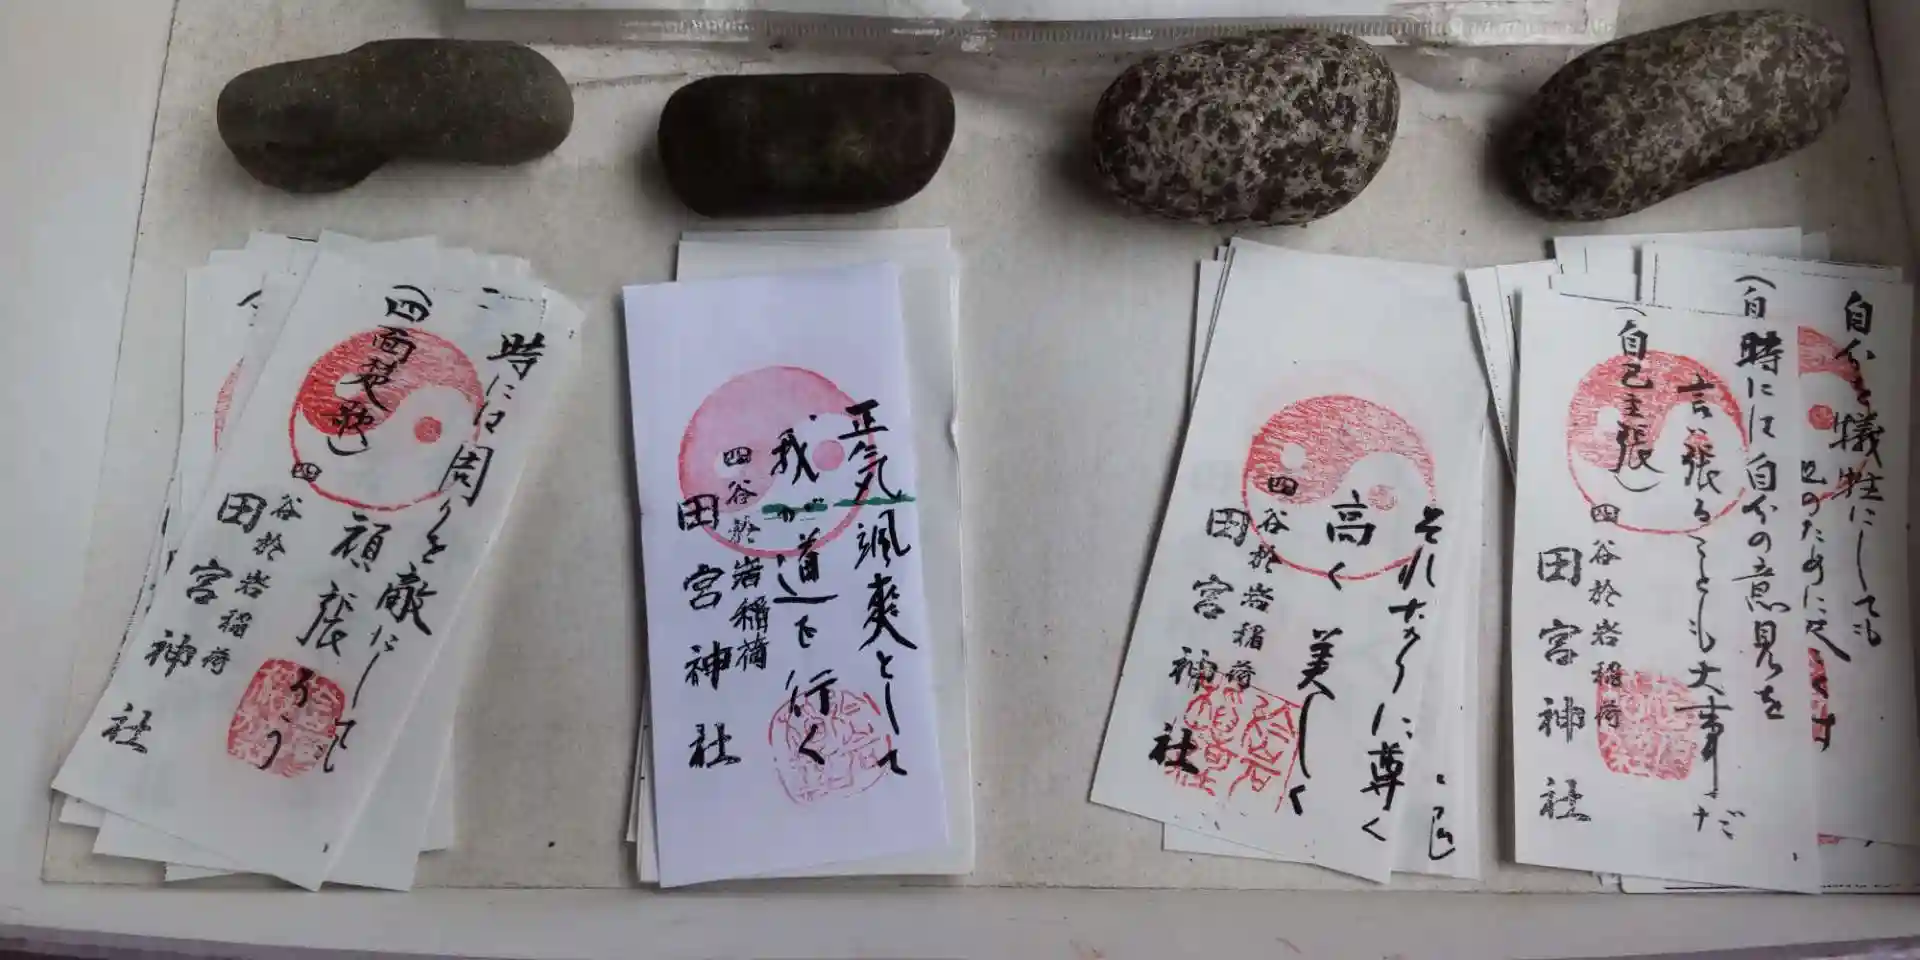 時には周りを敵にしても
頑張ろう
(四面楚歌)
四谷於岩稲荷
田宮神社
正気颯爽として
我が道を行く
四谷於岩稲荷
田宮神社
それなりに尊く
高く美しく
四谷於岩稲荷
田宮神社
自分を犠牲にしても
のために尽くす
(自
時には自分の意見を
言い張ることも大事だ
(自己主張)
四谷於岩稲荷
田宮神社